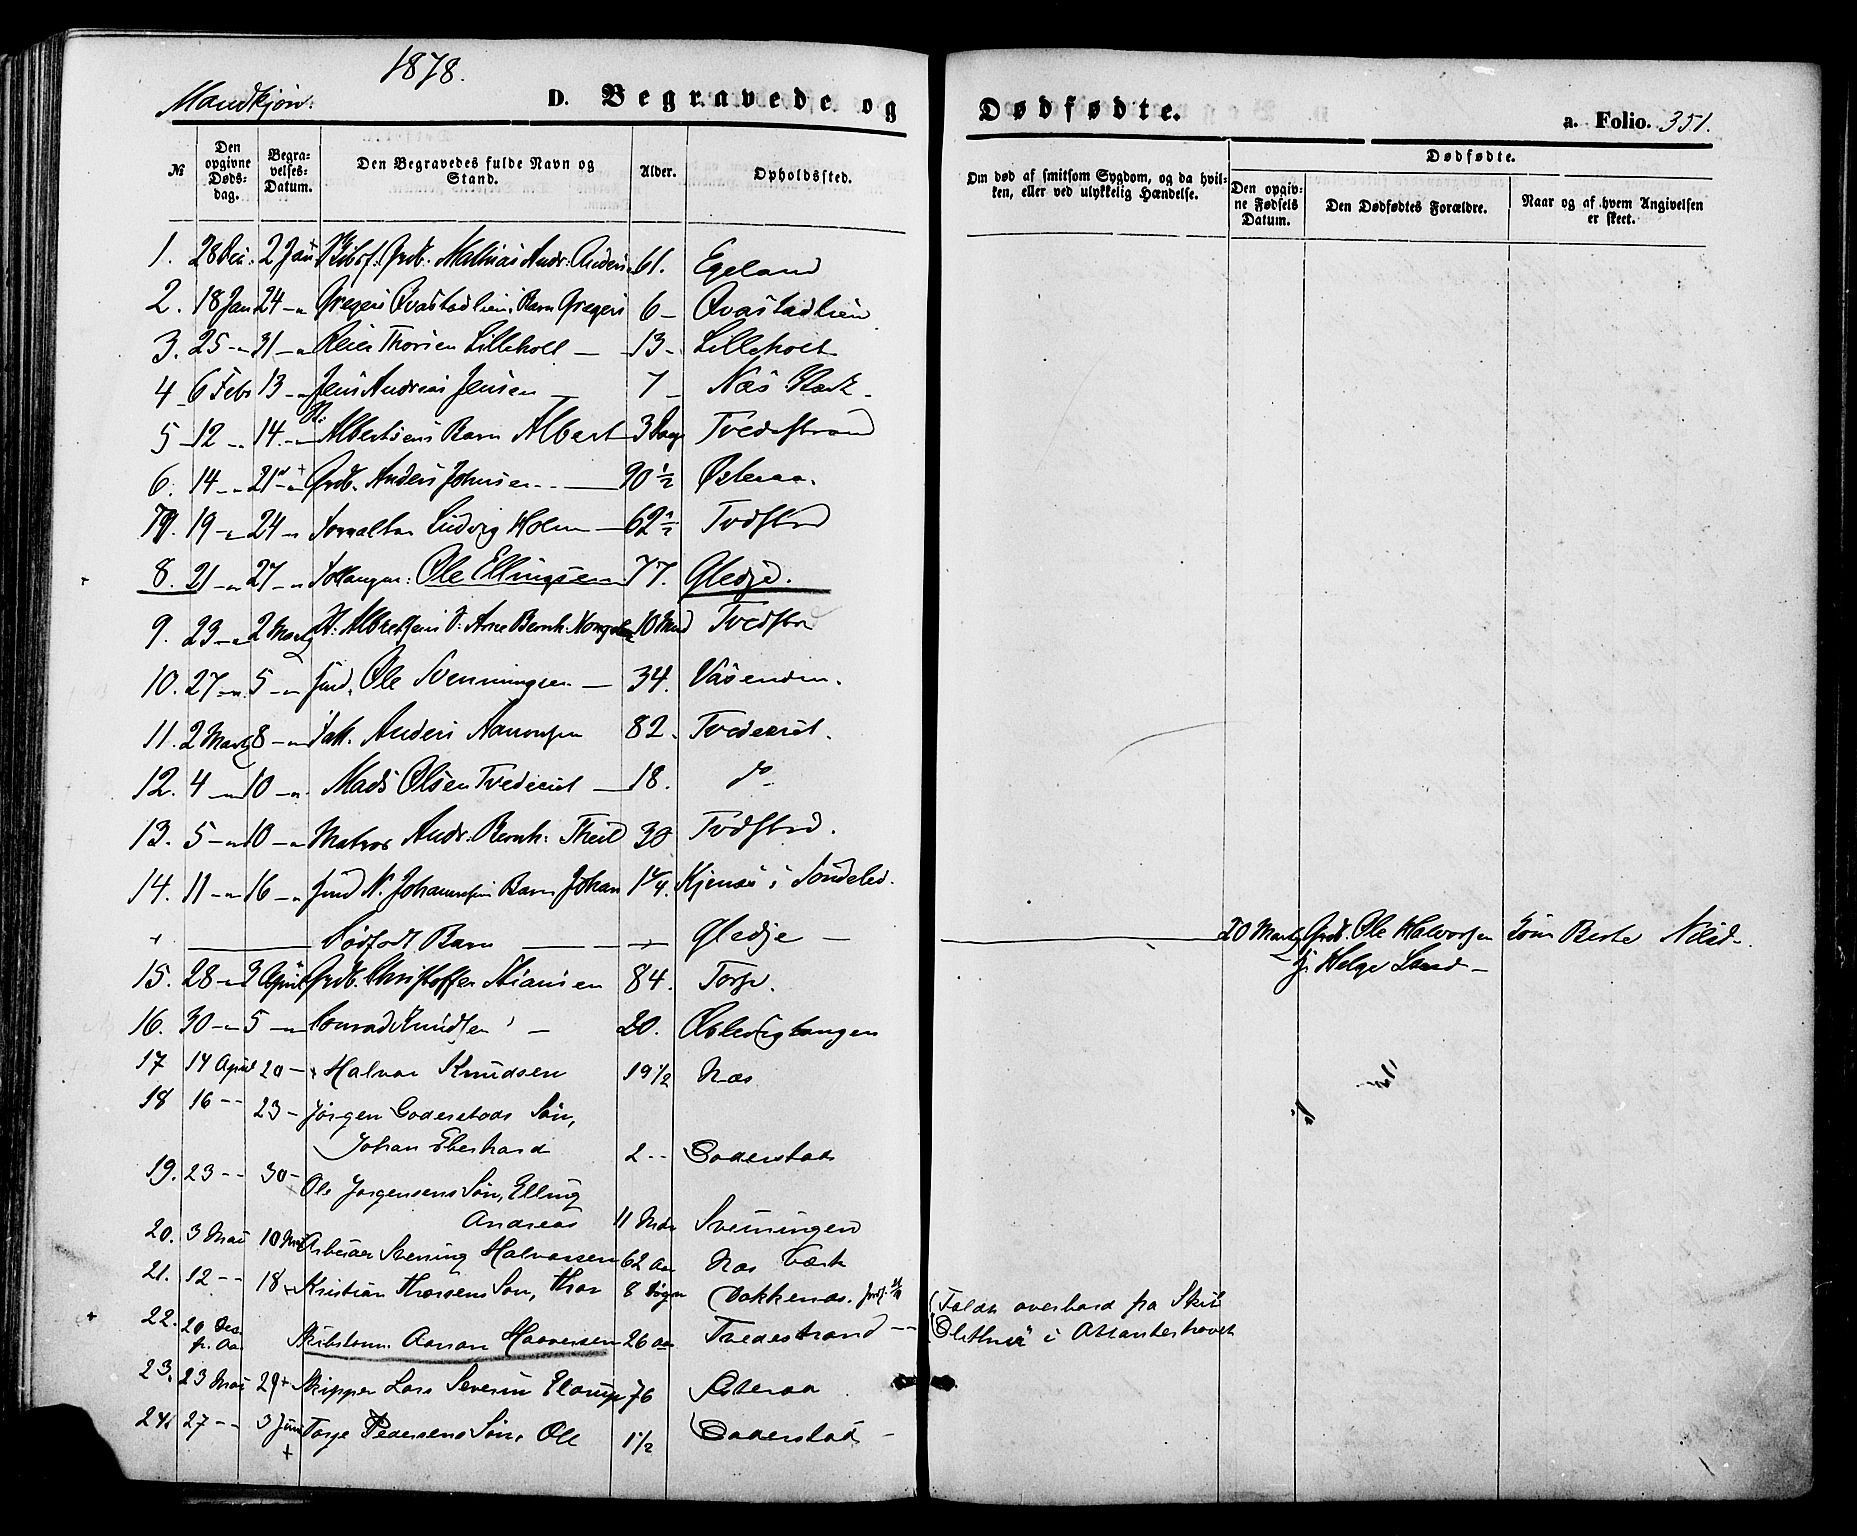 1878.
Mandkjön.
D. Begravede og Dødfødte.
a. Folio. 351.
№
Den opgivne Døds-dag.
Begra-velses-Datum.
Den Begravedes fulde Navn og Stand.
Alder.
Opholdssted.
Om død af smitsom Sygdom, og da hvil-ken, eller ved ulykkelig Hændelse.
Dødfødte.
Den opgiv-ne Fødsels Datum.
Den Dødfødtes Forældre.
Naar og af hvem Angivelsen er skeet.
1. 28 2 Jan Mathias Andr. 61. Egeland
2. 18 Jan 24 - Gregers Qvastadlien, Barn Gregers 6 - Qvastadlien
3. 25 - 31 - Thorsen Lilleholt - 13 - Lilleholt
4 6 Febr 13 - Jens Andreas Jensen - 7 - Næs Værk
5 - 12 - 14 - Albertsens Barn Albert 3 Tvedestrand
6. 14 - 21 - Grdb. Anders Johnsen - 90 1/2 Østeraa.
7 19 - 24 - Ludvig Holm - 62 1/2 Tvdstrd
8. 21 - 27 - Ole Ellingsen 77. Gledje.
9. 23 - 2 Marts Arne Bernh. 10 Mnd Tvedstr
10. 27 - 5 - Ind. Ole Svenningsen - 34. Vasenden.
11. 2 Marts 8 - Anders Aanonsen 82. Tvedereid.
12. 4 - 10 - Mads Olsen Tvedereid - 18. do
13. 5 - 10 - Matros Andr. Bernh. Theil 30 Tvdstrd.
14. 11 - 16 - Ind N. Johannesen Barn Johan 1 1/4. i Søndeled.
+ Dødfødt Barn - + - Gledje - 20 Marts Grdb. Ole Halvorsen
g. Helge
15. 28 - 3 April Grdb. Christoffer 84. Torp.
16. 30 - 5 - Conrad Knudsen - 20.
17 14 April 20 - Halvor Knudsen 19 1/2 Næs
18 16 -- 23 - Jørgen Goderstads Søn,
Johan Eberhard 2 -- Goderstad
19. 23 -- 30 - Ole Jørgensens Søn, Elling
Andreas 11 Mdr Sveiningen
20. 3 Mai 10 Mai Arbeider Svening Halvorsen 62 Aar Næs Værk
21. 12 -- 18 - Kristian Thorsens Søn, Thor 8 Dogn Bakkenæs.
22. 20 Des. f. Aar Aanon Haaversen 26 Aar Tvedestrand -- Falden overbord fra Skib
i Atlanterhavet
23. 23 Mai 29 + Skipper Lars Severin 76 Østeraa
24. 27 -- 3 Juni + Torje Pedersens Søn, Ole 1 1/2 Goderstad -